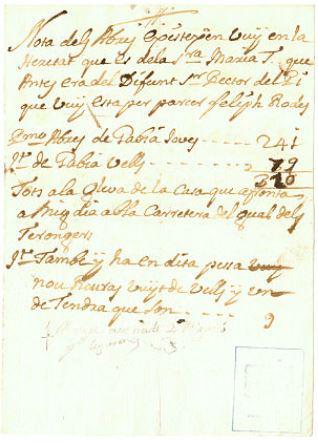 Nota dels Abres Existexen vuy en la
Heretat que es de la Sra Maria T. que
Antes era del Difunt Sr Rector del Pi
que vuy esta per parcer Felip Rodes
Pmo Abres de Pabiá Joves ---- 241
Yt de Pabiá Vells ---- 79
320
Tots a la de la Casa que afronta
a Mitg dia ab la Carretera del qual dels
Tarongers
Yt Tambe y ha en dita pessa vuy
nou vuyt de Vells y un
de Tendra que son ---- 9